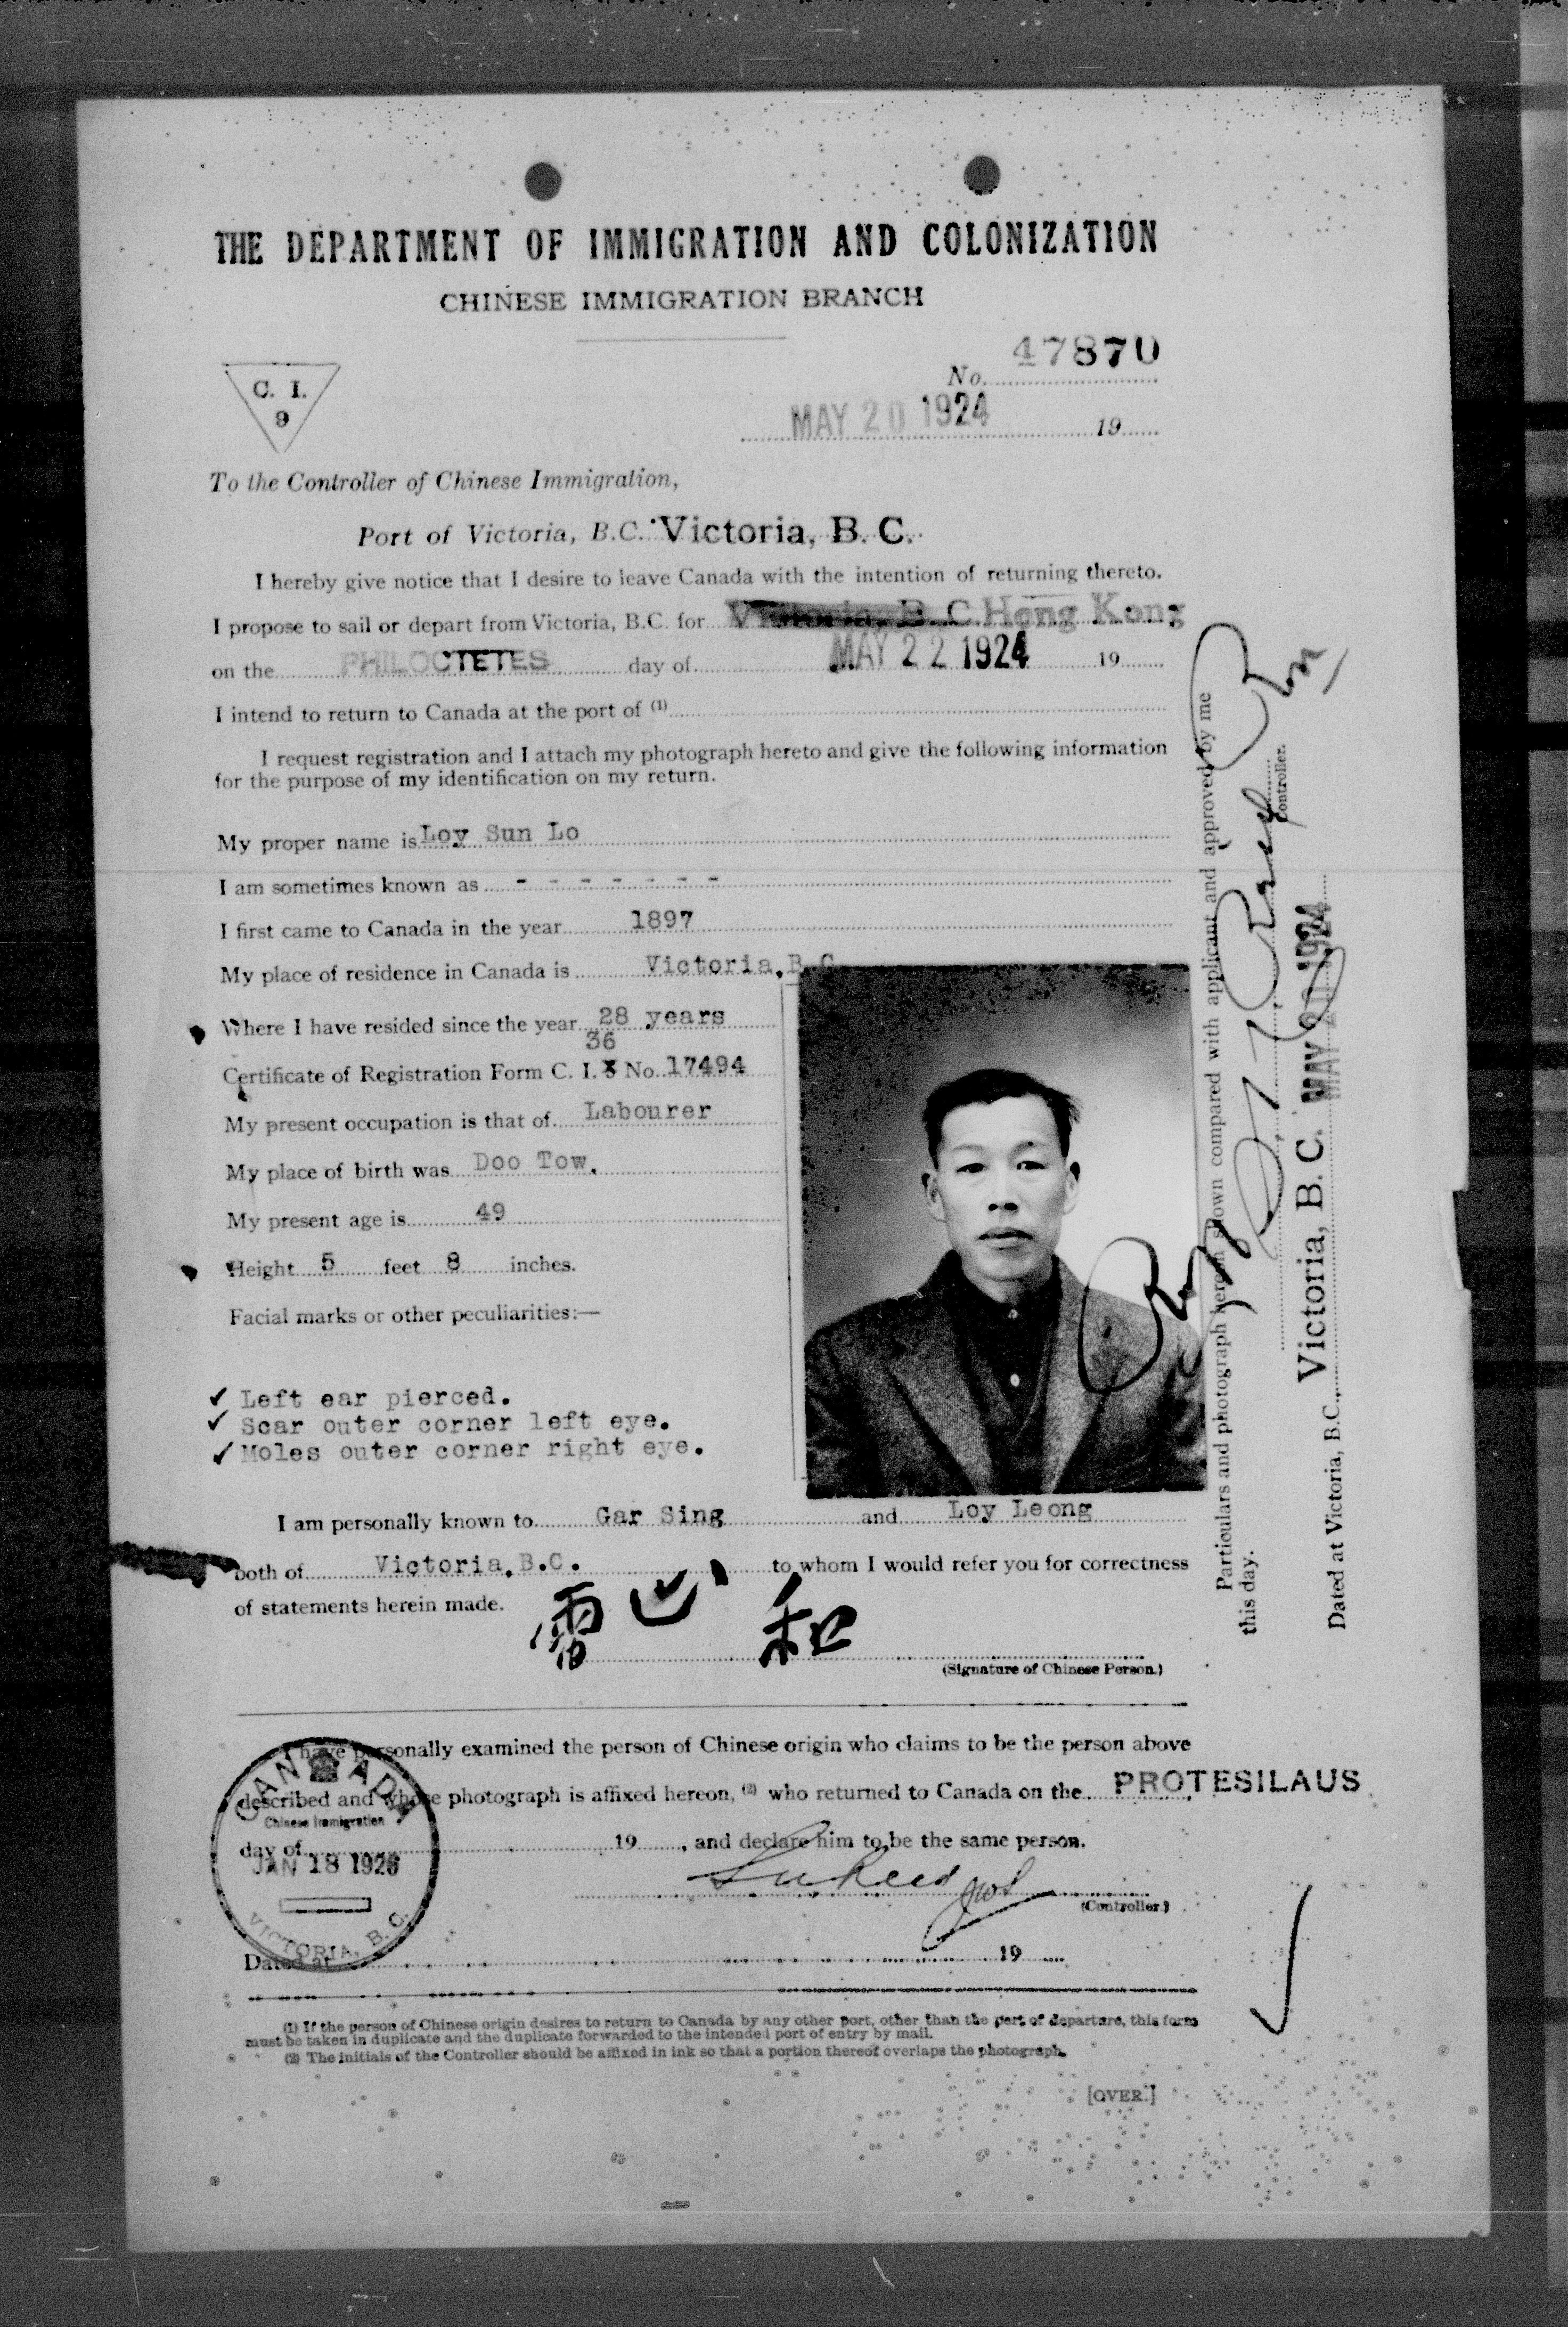 THE DEPARTMENT OF IMMIGRATION AND COLONIZATION
CHINESE IMMIGRATION BRANCH
C. I.
9
No. 47870
MAY 20 1924 19
To the Controller of Chinese Immigration,
Port of Victoria, B.C. Victoria, B. C.
I hereby give notice that I desire to leave Canada with the intention of returning thereto.
I propose to sail or depart from Victoria, B.C. for Victoria, B. C. Hong Kong
on the PHILOCTETES day of MAY 22 1924 19
I intend to return to Canada at the port of (1)
I request registration and I attach my photograph hereto and give the following information
for the purpose of my identification on my return.
My proper name is Loy Sun Lo
I am sometimes known as - - - - - - -
I first came to Canada in the year 1897
My place of residence in Canada is Victoria, B.C.
Where I have resided since the year 28 years
36
Certificate of Registration Form C. I. 5 No. 17494
My present occupation is that of Labourer
My place of birth was Doo Tow.
My present age is 49
Height 5 feet 8 inches.
Facial marks or other peculiarities:—
✓ Left ear pierced.
✓ Scar outer corner left eye.
✓ Moles outer corner right eye.
I am personally known to Gar Sing and Loy Leong
both of Victoria, B.C. to whom I would refer you for correctness
of statements herein made.
雷 心 和
(Signature of Chinese Person.)
I have personally examined the person of Chinese origin who claims to be the person above
described and whose photograph is affixed hereon, (2) who returned to Canada on the PROTESILAUS
day of 19, and declare him to be the same person.
(Controller.)
Dated at 19
CANADA
Chinese Immigration
JAN 18 1926
VICTORIA, B.C.
(1) If the person of Chinese origin desires to return to Canada by any other port, other than the port of departure, this form
must be taken in duplicate and the duplicate forwarded to the intended port of entry by mail.
(2) The initials of the Controller should be affixed in ink so that a portion thereof overlaps the photograph.
[OVER.]
Particulars and photograph hereon shown compared with applicant and approved by me
this day.
Controller.
Dated at Victoria, B.C., Victoria, B. C. MAY 20 1924